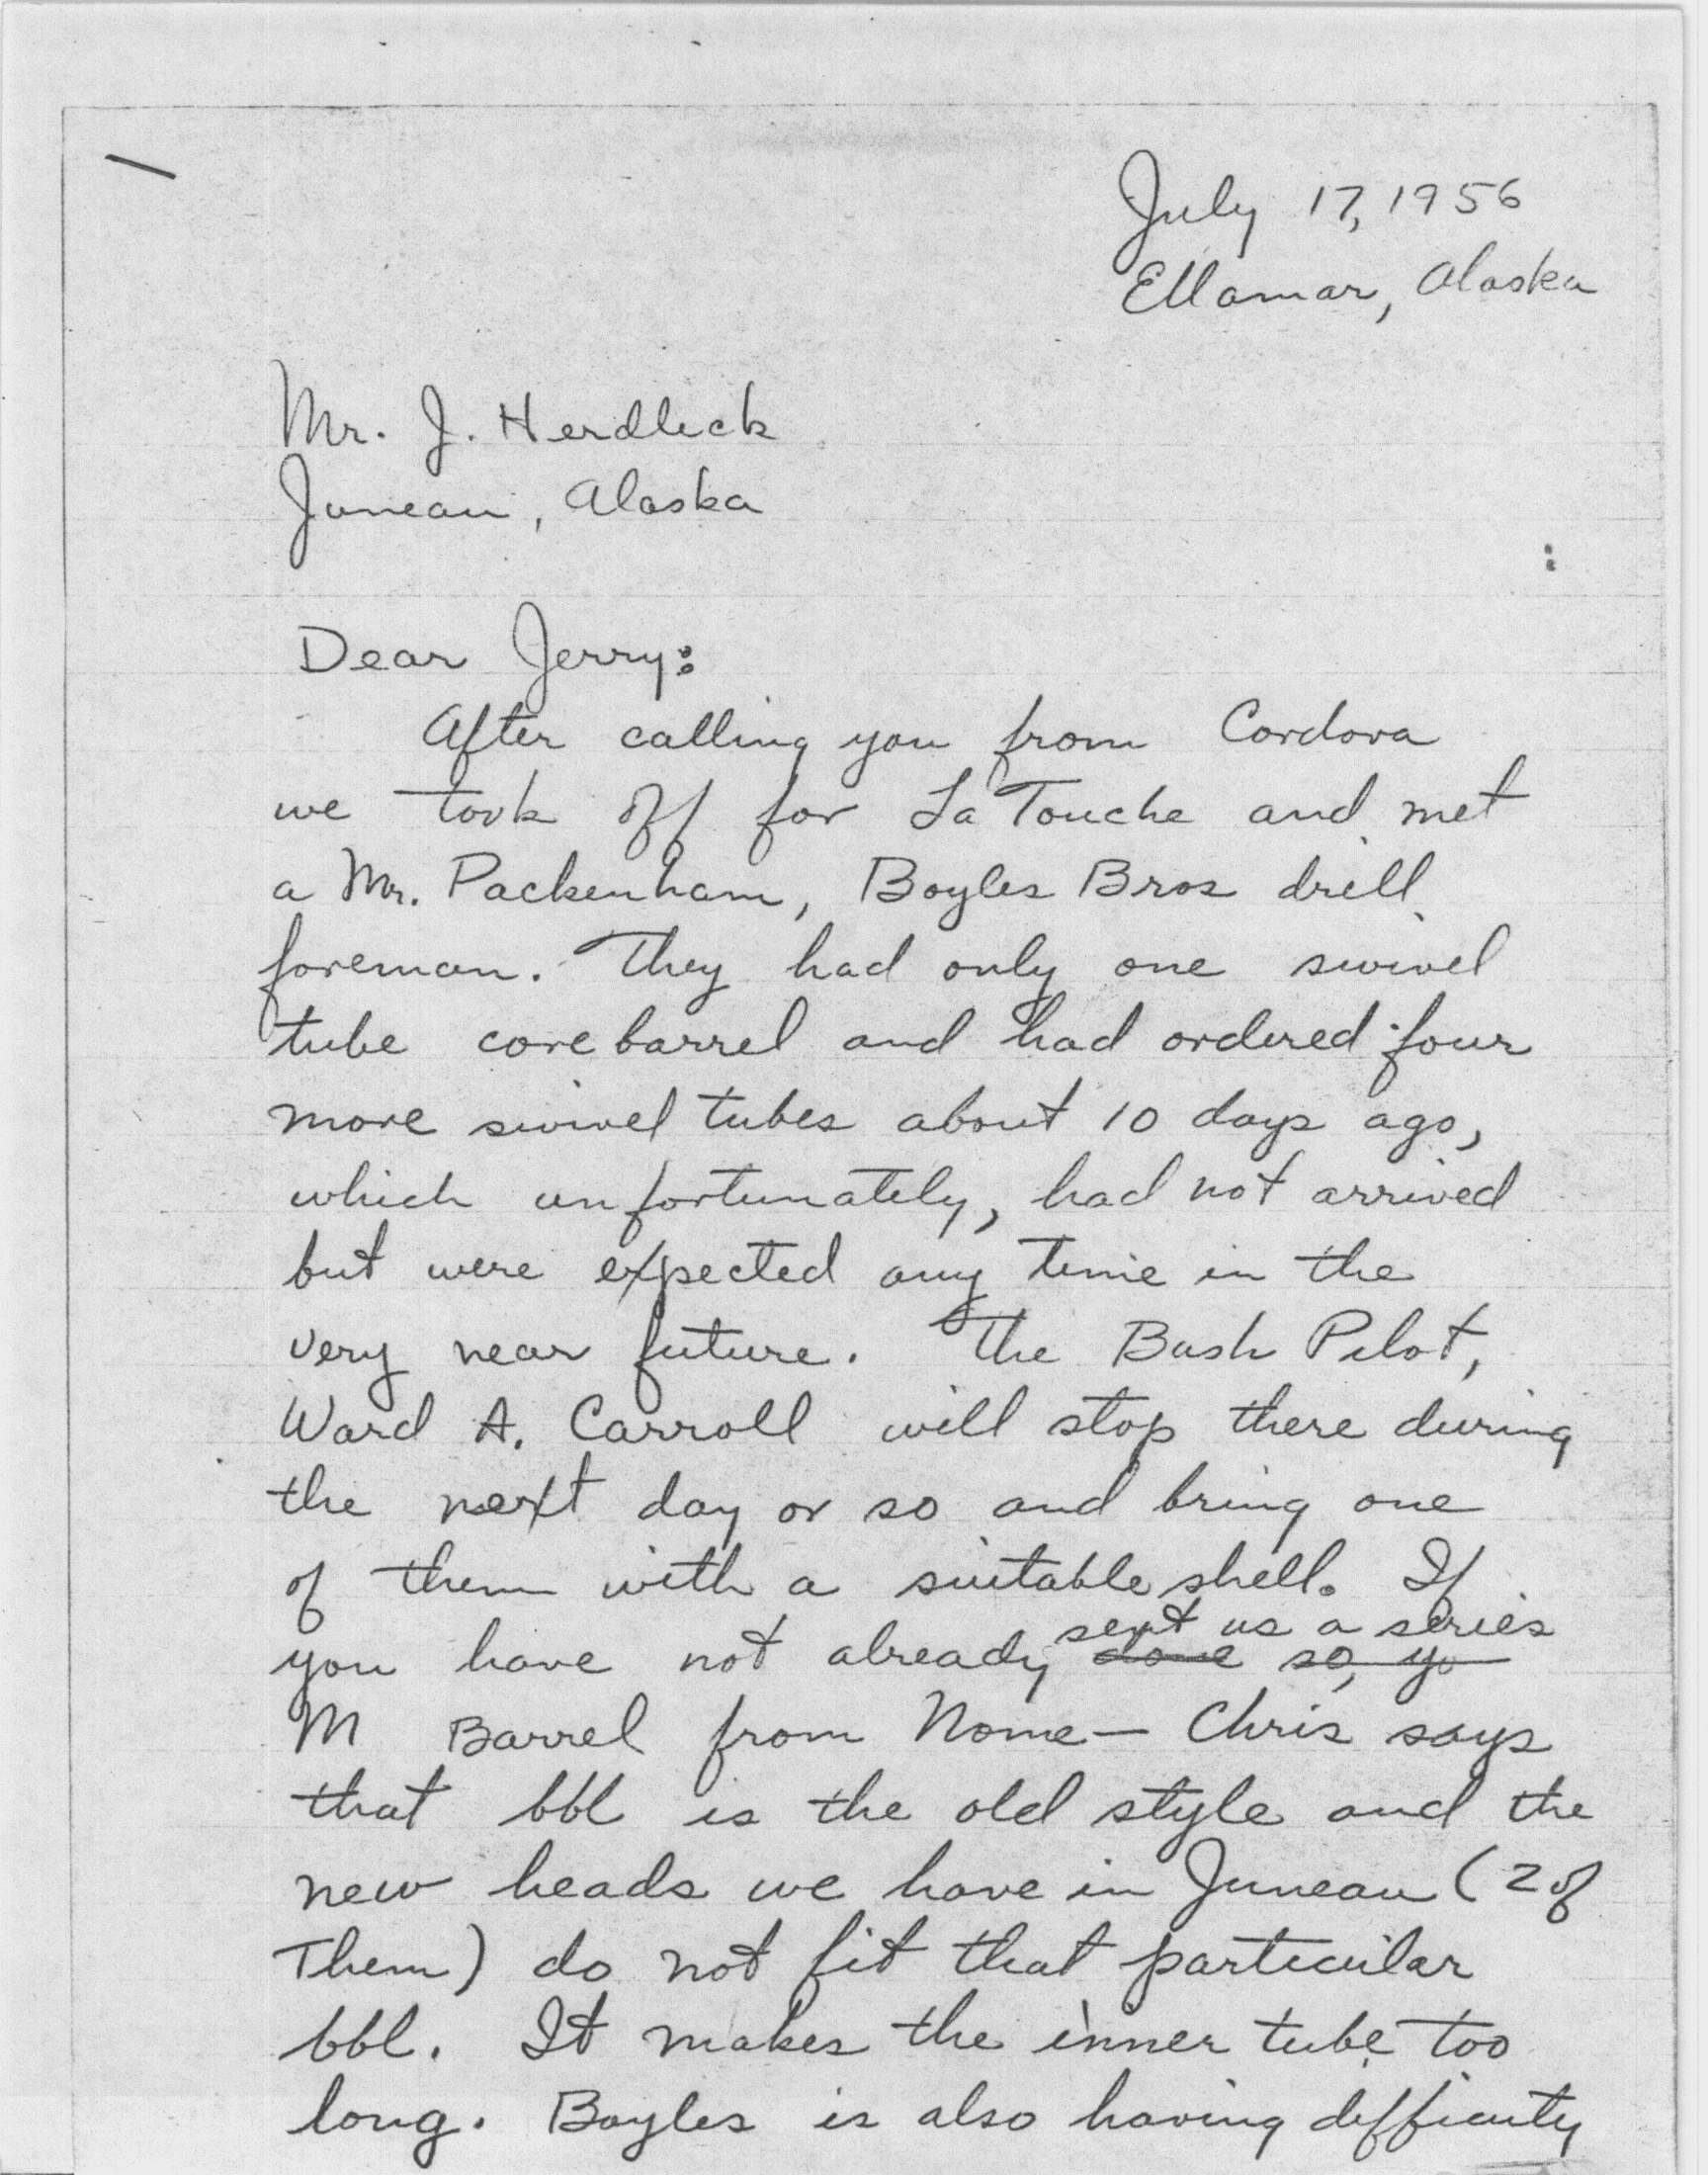 July 17, 1956
Ellamar, Alaska
Mr. J. Herdlick
Juneau, Alaska
Dear Jerry:
After calling you from Cordova
we took off for La Touche and met
a Mr. Packenham, Boyles Bros drill
foreman. They had only one swivel
tube core barrel and had ordered four
more swivel tubes about 10 days ago,
which unfortunately, had not arrived
but were expected any time in the
very near future. The Bush Pilot,
Ward A. Carroll will stop there during
the next day or so and bring one
of them with a suitable shell. If
sent us a series
you have not already done so, yo
M Barrel from Nome — Chris says
that bbl is the old style and the
new heads we have in Juneau (2 of
Them) do not fit that particular
bbl. It makes the inner tube too
long. Boyles is also having difficulty